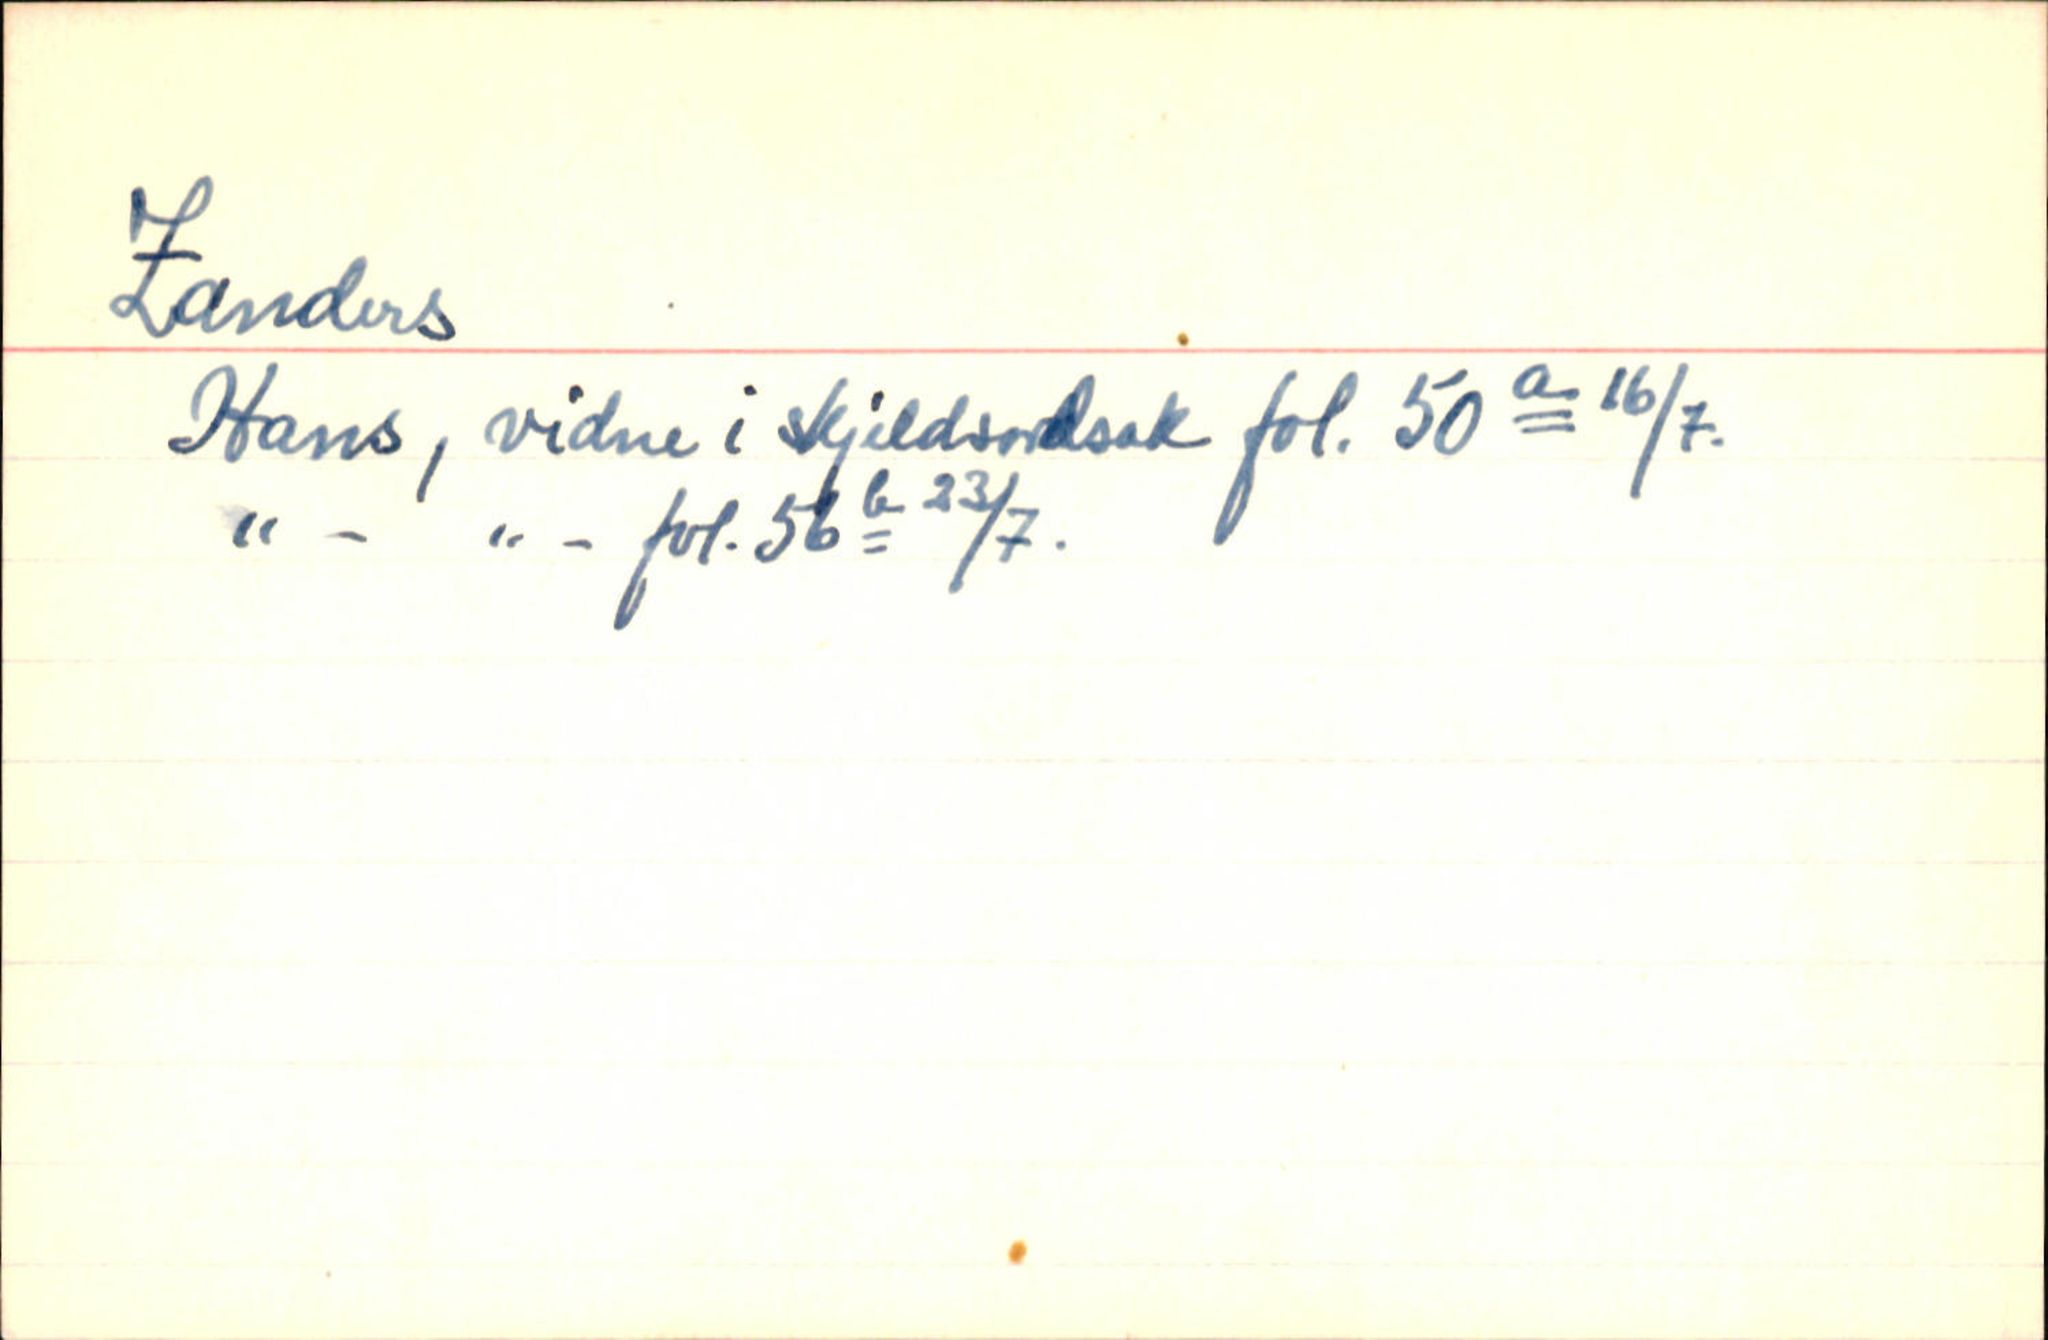 Zanders
Hans, vidne i skjeldsordsak fol. 50 a 16/7.
" - " - fol. 56 b 23/7.